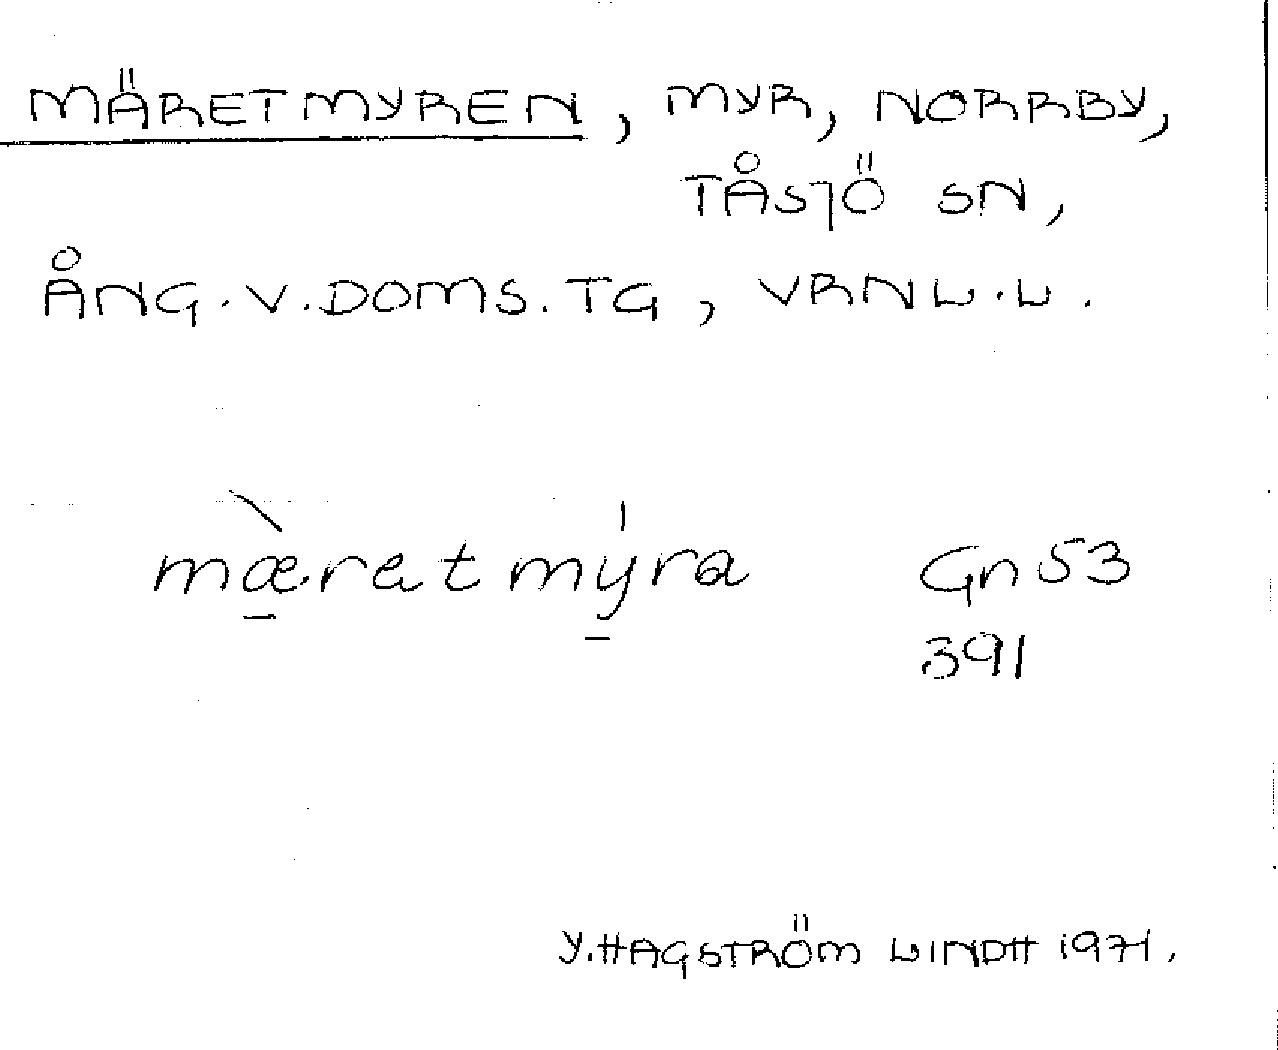 MÄRETMYREN, MYR, NORRBY,
TÅSJÖ SN,
ÅNG.V.DOMS.TG, VRNL.L.
mæ̀retmýra Gn 53
391
Y.HAGSTRÖM LINDH 1971.